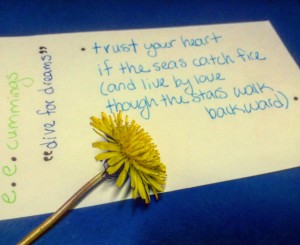 e. e. cummings
"dive for dreams"
• trust your heart
if the seas catch fire
(and live by love
though the stars walk
backward) •